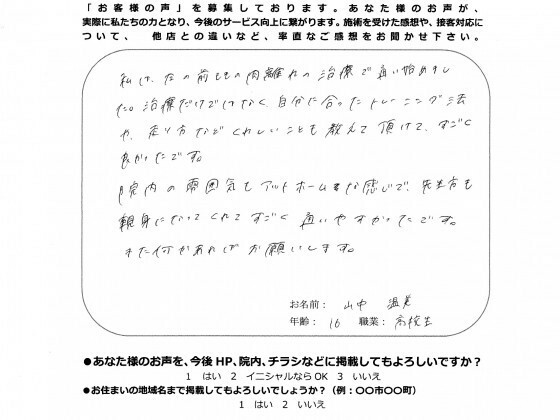 「お客様の声」を募集しております。あなた様のお声が、
実際に私たちの力となり、今後のサービス向上に繋がります。施術を受けた感想や、接客対応に
ついて、 他店との違いなど、率直なご感想をお聞かせ下さい。
私は、左の前ももの肉離れの治療で通い始めまし
た。治療だけでなく、自分に合ったトレーニング法
や、走り方などくわしいことも教えて頂けて、すごく
良かったです。
院内の雰囲気もアットホームな感じで、先生方も
親身になってくれてすごく通いやすかったです。
また何かあればお願いします。
お名前： 山中
年齢： 16 職業： 高校生
●あなた様のお声を、今後HP、院内、チラシなどに掲載してもよろしいですか？
1 はい 2 イニシャルならOK 3 いいえ
●お住まいの地域名まで掲載してもよろしいでしょうか？（例：〇〇市〇〇町）
1 はい 2 いいえ